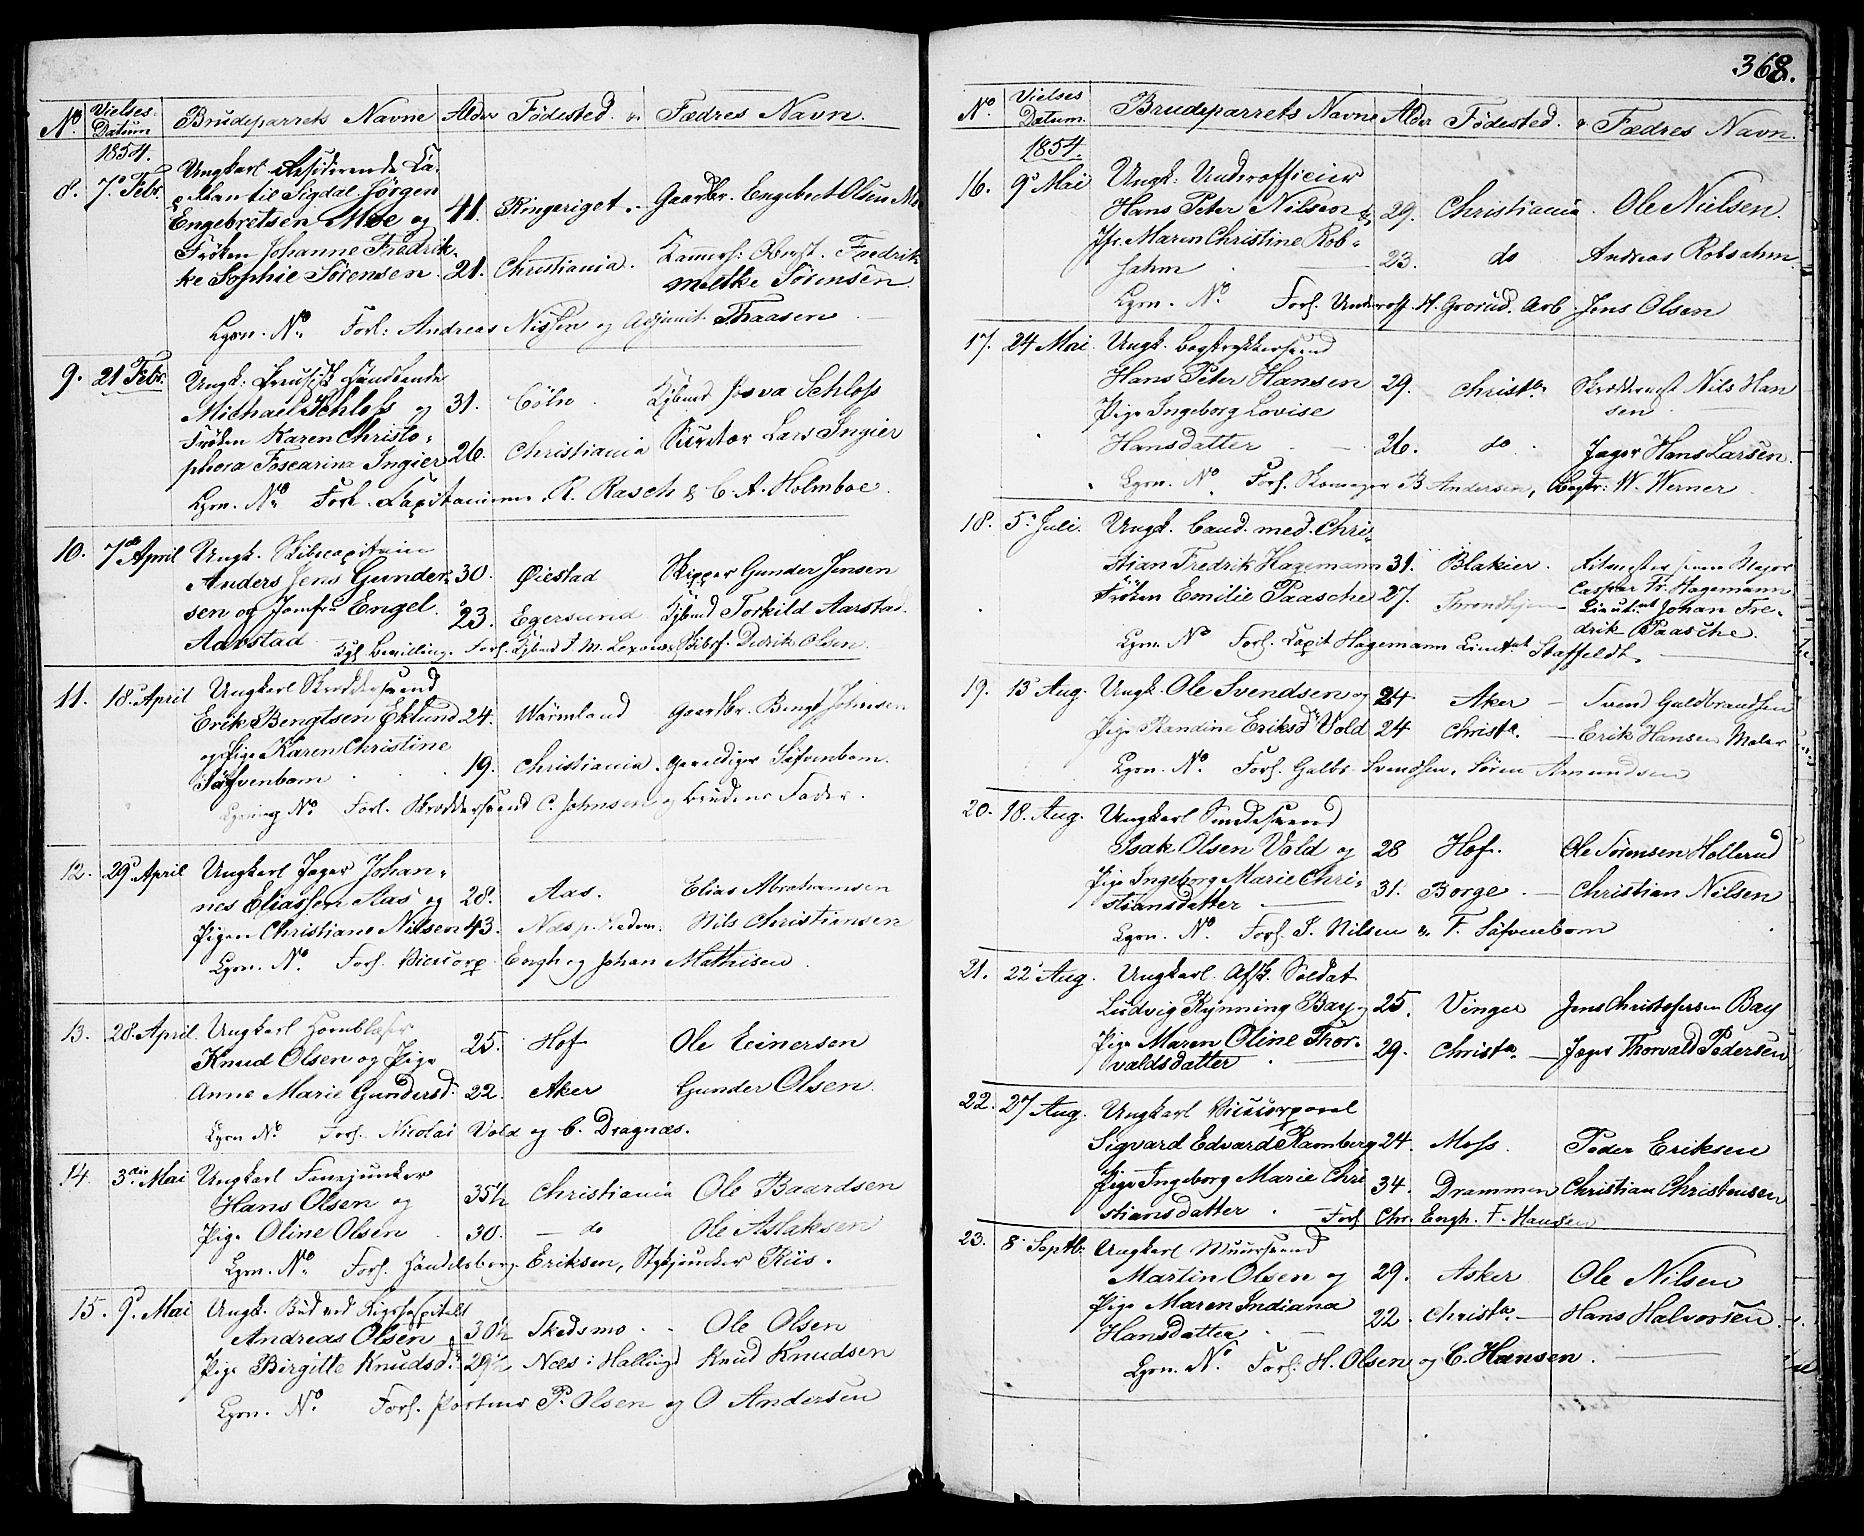 No Vielses Datum Brudeparrets Navne Alder Fødested & Fædres Navn.
1854.
8. 7de Febr. Ungkarl residerende Ca-
pellan til Sigdal Jörgen
Engebretsen Moe og 41. Ringeriget. Gaardbr. Engebret Olsen Moe
Fröken Johanne Fredrik-
ke Sophie Sörensen 21. Christiania. Kammerh: Oberst. Fredrik
Meltke Sörensen
Lysn. No. Forl: Andreas Nissen og Adjunct Thaasen
9. 21 Febr. Ungk: Preusisk Handlende
Michael Schloss og 31. Cöln. Kjbmd Josva Schloss
Fröken Karen Christo-
phora Foscarina Ingier 26. Christiania Kurator Lars Ingier
Lysn. No. Forl. Capitainerne R. Rasch & C. A. Holmboe.
10. 7de April Ungk. Skibscapitain
Anders Jens Gunder- 30. Øiestad Skipper Gunder Jensen
sen og Jomfru Engel 23. Egersund Kjbmd Torkild Aarstad.
Aarstad Kgl. Bevilling. Forl. Kjbmd Skibsf. Didrik Olsen
11. 18. April Ungkarl Skræddersvend
Erik Bengtsen Eklund 24. Wärmland Gaardbr. Bengt Johnsen
og Pige Karen Christine
Söfvenbom 19. Christiania. Söfvenbom.
Lysning No. Forl. Skræddersvend C. Johnsen og Brudens Fader.
12. 29 April Ungkarl Jæger Johan-
nes Eliassen Aas og 28. Aas. Elias Abrahamsen
Pigen Christiane Nilsen 43. Næs p. Hedem. Nils Christiansen
Lysn. No. Forl. Vicecorp. Engh og Johan Mathisen.
13. 28. April. Ungkarl Hornblæser
Knud Olsen og Pige 25. Hof Ole Einersen
Anne Marie Gundersd. 22. Aker Gunder Olsen.
Lysn No. Forl. Nicolai Vold og C. Dragnæs.
14. 3die Mai Ungkarl Fanejunker
Hans Olsen og 35½ Christiania Ole Baardsen
Pige Oline Olsen 30. — do Ole Aslaksen
Lysn. No. Forl. Handelsborg. Eriksen, Stykjunker Riis.
15. 9. Mai Ungk. Bud ved Rigshospitalet
Andreas Olsen & 30½ Skedsmo Ole Olsen
Pige Birgitte Knudsd. 29½ Næs i Hallingd Knud Knudsen
Lysn. No. Forl. Portner P. Olsen og O Andersen
368.
No. Vielses Datum. Brudeparrets Navne Alder Fødested. & Fædres Navn.
1854.
16. 9 Mai Ungk: Underofficier
Hans Peter Nilsen & 29. Christiania. Ole Nielsen.
Jfr. Maren Christine Rob-
sahm 23. do Andreas Robsahm
Lysn. No. Forl. Underoff. H. Grorud. Arb. Jens Olsen
17. 24 Mai. Ungk. Bogtrykkersvend
Hans Peter Hansen 29. Christa. Skræddermest. Nils Han
sen.
Pige Ingeborg Lovise
Hansdatter 26. do Jæger Hans Larsen.
Lysn. No. Forl. Skomager B Andersen, Bogtr: W. Werner
18. 5. Juli. Ungk. Cand. med. Chri-
stian Fredrik Hagemann 31. Blakier. Ritmester senere Major
Caspar Fr. Hagemann
Fröken Emilie Paasche 27. Throndhjem Lieutnt Johan Fre-
drik Paasche.
Lysn No Forl. Capit Hagemann Lieutnt Staffeldt.
19. 13 Aug. Ungk. Ole Svendsen og 24 Aker — Svend Guldbrandsen
Pige Randine Eriksd. Vold 24 Christa. — Erik Hansen Maler
Lysn. No. Forl. Gulbr. Svendsen. Sören Amundsen
20. 18. Aug. Ungkarl Smedesvend
Isak Olsen Vold og 28 Hof. Ole Sörensen Hollerud
Pige Ingeborg Marie Chri-
stiansdatter 31. Borge. — Christian Nilsen
Lysn. No. Forl. S. Nilsen & F. Söfvenbom
21. 22 Aug. Ungkarl. Afsk. Soldat
Ludvig Rynning Bay og 25. Vinger Jens Christophersen Bay
Pige Maren Oline Thor-
valdsdatter 29. Christa. — Jæger Thorvald Pedersen
22. 27 Aug. Ungkarl Vicecorporal
Sigvard Edvard Ramberg 24. Moss. Peder Eriksen
Pige Ingeborg Marie Chri 34. Drammen Christian Christensen
stiansdatter. — Forl Chr. Engh. F. Hansen
23. 8. Septb. Ungkarl Muursvend
Martin Olsen og 29. Asker Ole Nilsen
Pige Maren Indiana 22. Christa. — Hans Halvorsen.
Hansdatter. —
Lysn. No. Forl. H. Olsen og C. Hansen. —